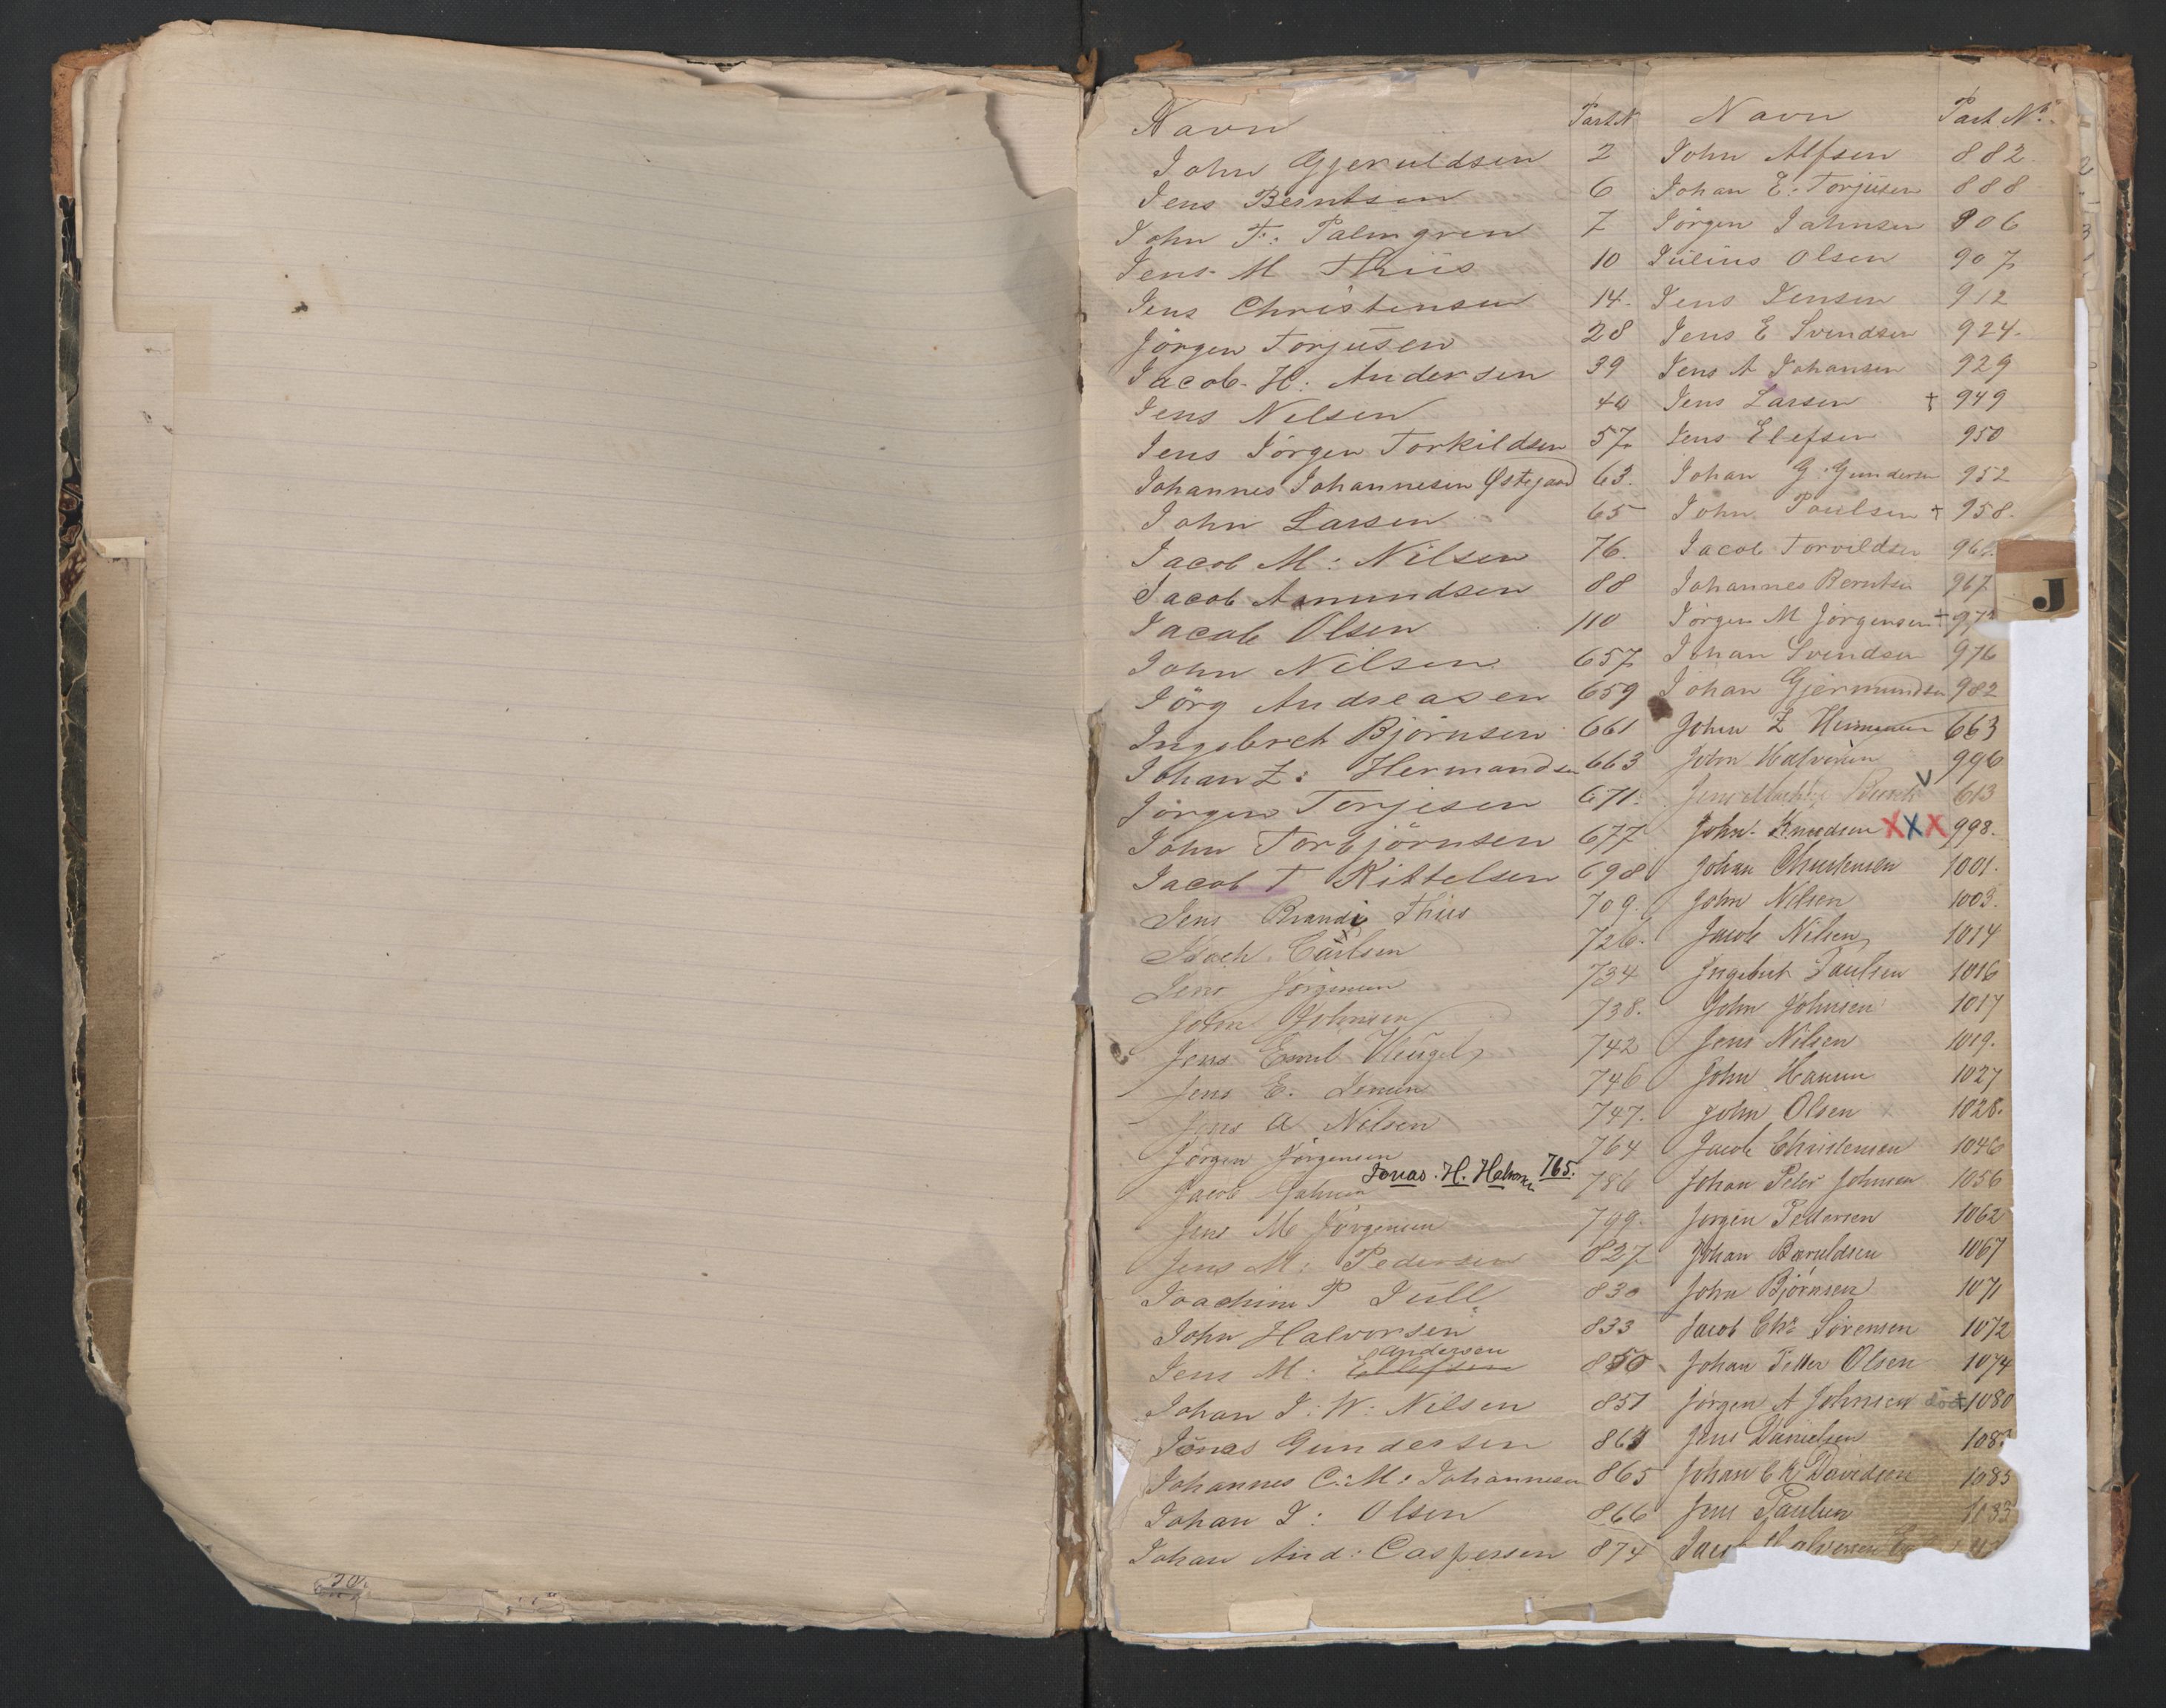 Navn Part. N
John Gjeruldsen 2
Jens Berntsen 6
John F: Palmgren 7
Jens M Thiis 10
Jens Christensen 14.
Jörgen Torjusen 28
Jacob H: Andersen 39
Jens Nelsen 40
Jens Jörgen Torkildsen 57
Johannes Johannesen Østegaard 63.
John Larsen 65
Jacob M: Nilsen 76.
Jacob Amundsen 88
Jacob Olsen 110
John Nilsen 657
Jörg Andreasen 659
Ingebret Björnsen 661
Johan Z: Hermandsen 663
Jörgen Torjesen 671.
John Torbjörnsen 677
Jacob T Kittelsen 698
Jens Brandi Thiis 709.
Isach Carlsen 726.
Jens Jörgensen 734
John Johnsen 738.
Jens Emil Vleugel 742
Jens E. Jensen 746
Jens A Nilsen 747.
Jörgen Jörgensen 764
Jonas. H. Halvorsen 765.
Jacob Jahnsen 786
Jens M Jörgensen 799.
Jens M: Pedersen 827
Joachim P Juell 830
John Halvorsen 833
Andersen
Jens M: Ellefsen 850
Johan J: W: Nilsen 851
Jonas Gundersen 864
Johannes C: M: Johannesen 865
Johan J: Olsen 866
Johan And: Caspersen 874
Navn Part. No.
John Alfsen 882.
Johan E: Torjusen 888
Jörgen Jahnsen 906
Julius Olsen 907
Jens Jensen 912
Jens E Svendsen 924.
Jens A Johansen 929
Jens Larsen † 949
Jens Elefsen 950
Johan G: Gundersen 952
John Poulsen † 958.
Jacob Torvildsen 966.
Johannes Berntsen 967
Jörgen M Jörgensen †
Johan Svendsen 976
Johan Gjermundsen 982
Johan Z Hermansen 663
John Halvorsen 996
Jens V 613
John Knudsen XXX 998.
Johan Christensen 1001.
John Nilsen 1003.
Jacob Nilsen 1014
Ingebret Paulsen 1016
John Johnsen 1017
Jens Nilsen 1019.
John Hansen 1027
John Olsen 1028.
Jacob Christensen 1046
Johan Peter Johnsen 1056
Jörgen Pedersen 1062
Johan Baruldsen 1067
John Björnsen 1071
Jacob Chr Sörensen 1072
Johan Petter Olsen 1074
Jörgen A Johnsen död † 1080
Jens Danielsen 108
Johan Davidsen 1085
Jens Paulsen 1133
Jacob Halvorsen
J